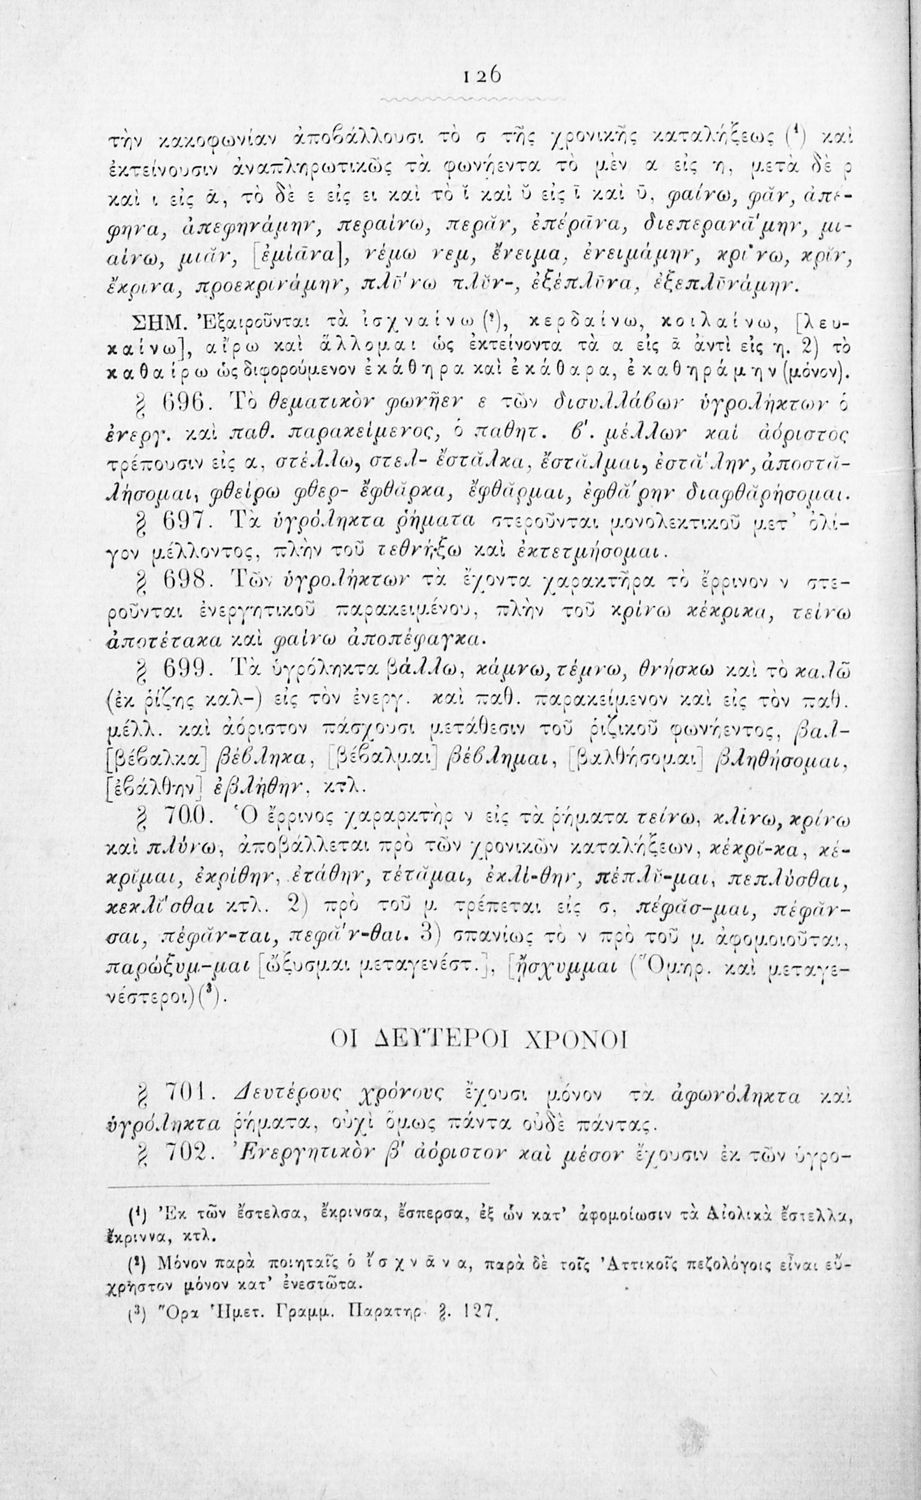 126
τὴν κακοφωνίαν ἀποβάλλουσι τὸ σ τῆς χρονικῆς καταλήξεως (¹) καὶ
ἐκτείνουσιν ἀναπληρωτικῶς τὰ φωνήεντα τὸ μὲν α εἰς η, μετὰ δὲ ρ
καὶ ι εἰς ᾱ, τὸ δὲ ε εἰς ει καὶ τὸ ῐ καὶ ῠ εἰς ῑ καὶ ῡ, φαίνω, φᾰν, ἀπέ-
φηνα, ἀπεφηνάμην, περαίνω, περᾰν, ἐπέρᾱνα, διεπερανᾱ́μην, μι-
αίνω, μιᾰν, [ἐμίᾱνα], νέμω νεμ, ἔνειμα, ἐνειμάμην, κρί̄νω, κρῐν,
ἔκρινα, προεκρινάμην, πλῡ́νω πλῠν-, ἐξέπλῡνα, ἐξεπλῡνάμην.
ΣΗΜ. Ἐξαιροῦνται τὰ ἰσχναίνω (²), κερδαίνω, κοιλαίνω, [λευ-
καίνω], αἴρω καὶ ἅλλομαι ὡς ἐκτείνοντα τὰ α εἰς ᾱ ἀντὶ εἰς η. 2) τὸ
καθαίρω ὡς διφορούμενον ἐκάθηρα καὶ ἐκάθαρα, ἐκαθηράμην (μόνον).
§ 696. Τὸ θεματικὸν φωνῆεν ε τῶν δισυλλάβων ὑγρολήκτων ὁ
ἐνεργ. καὶ παθ. παρακείμενος, ὁ παθητ. β'. μέλλων καὶ ἀόριστος
τρέπουσιν εἰς α, στέλλω, στελ- ἔστᾰλκα, ἔσταλμαι, ἐστᾰ́λην, ἀποστᾰ-
λήσομαι, φθείρω φθερ- ἔφθᾰρκα, ἔφθᾰρμαι, ἐφθᾰ́ρην διαφθᾰρήσομαι.
§ 697. Τὰ ὑγρόληκτα ῥήματα στεροῦνται μονολεκτικοῦ μετ' ὀλί-
γον μέλλοντος, πλὴν τοῦ τεθνήξω καὶ ἐκτετμήσομαι.
§ 698. Τῶν ὑγρολήκτων τὰ ἔχοντα χαρακτῆρα τὸ ἔρρινον ν στε-
ροῦνται ἐνεργητικοῦ παρακειμένου, πλὴν τοῦ κρίνω κέκρικα, τείνω
ἀποτέτακα καὶ φαίνω ἀποπέφαγκα.
§ 699. Τὰ ὑγρόληκτα βάλλω, κάμνω, τέμνω, θνήσκω καὶ τὸ καλῶ
(ἐκ ῥίζης καλ-) εἰς τὸν ἐνεργ. καὶ παθ. παρακείμενον καὶ εἰς τὸν παθ.
μέλλ. καὶ ἀόριστον πάσχουσι μετάθεσιν τοῦ ῥιζικοῦ φωνήεντος, βαλ-
[βέβαλκα] βέβληκα, [βέβαλμαι] βέβλημαι, [βαλθήσομαι] βληθήσομαι,
[ἐβάλθην] ἐβλήθην, κτλ.
§ 700. Ὁ ἔρρινος χαραρκτὴρ ν εἰς τὰ ῥήματα τείνω, κλίνω, κρίνω
καὶ πλύνω, ἀποβάλλεται πρὸ τῶν χρονικῶν καταλήξεων, κέκρῐ-κα, κέ-
κρῐμαι, ἐκρίθην, ἐτάθην, τέτᾰμαι, ἐκλί-θην, πέπλῠ-μαι, πεπλύσθαι,
κεκλῐ́σθαι κτλ. 2) πρὸ τοῦ μ τρέπεται εἰς σ, πέφᾰσ-μαι, πέφᾰν-
σαι, πέφᾰν-ται, πεφᾰ́ν-θαι. 3) σπανίως τὸ ν πρὸ τοῦ μ ἀφομοιοῦται,
παρώξυμ-μαι [ὤξυσμαι μεταγενέστ.], [ᾔσχυμμαι (Ὅμηρ. καὶ μεταγε-
νέστεροι)(³).
ΟΙ ΔΕΥΤΕΡΟΙ ΧΡΟΝΟΙ
§ 701. Δευτέρους χρόνους ἔχουσι μόνον τὰ ἀφωνόληκτα καὶ
ὑγρόληκτα ῥήματα, οὐχὶ ὅμως πάντα οὐδὲ πάντας.
§ 702. Ἐνεργητικὸν β' ἀόριστον καὶ μέσον ἔχουσιν ἐκ τῶν ὑγρο-
(¹) Ἐκ τῶν ἔστελσα, ἔκρινσα, ἔσπερσα, ἐξ ὧν κατ' ἀφομοίωσιν τὰ Αἰολικὰ ἔστελλα,
ἔκριννα, κτλ.
(²) Μόνον παρὰ ποιηταῖς ὁ ἴσχνᾱνα, παρὰ δὲ τοῖς Ἀττικοῖς πεζολόγοις εἶναι εὔ-
χρηστον μόνον κατ' ἐνεστῶτα.
(³) Ὅρα Ἡμετ. Γραμμ. Παρατηρ. §. 127.